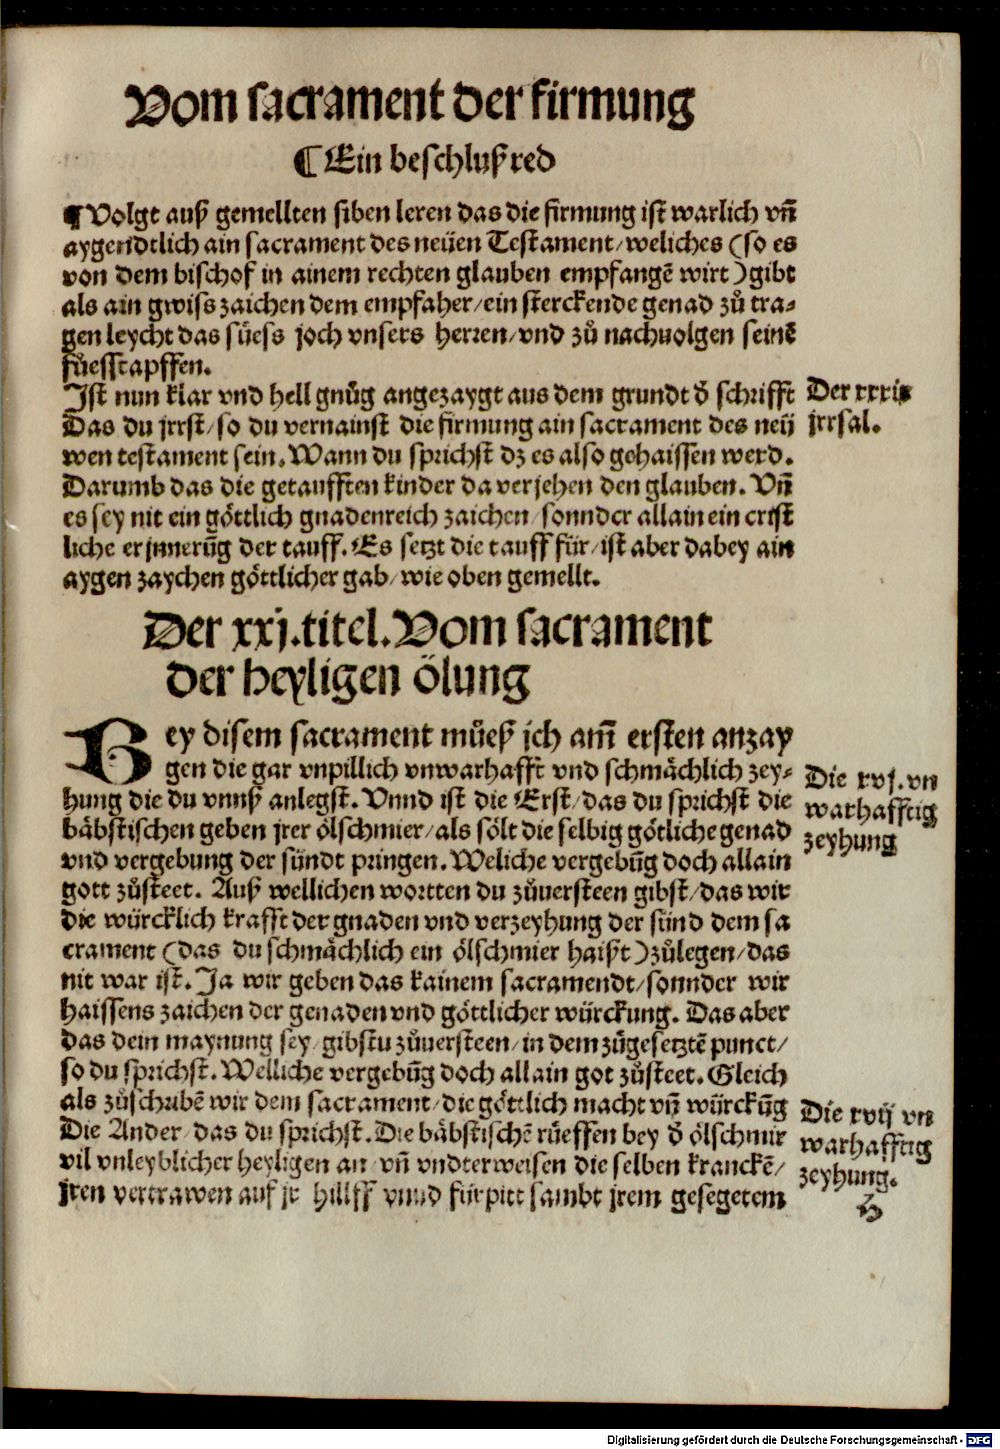 Vom sacrament der firmung
¶ Ein beschlußred
¶ Volgt auß gemellten siben leren das die firmung ist warlich vn̄
aygendtlich ain sacrament des neüen Testament/weliches (so es
von dem bischof in ainem rechten glauben empfangē wirt) gibt
als ain gwiss zaichen dem empfaher/ein sterckende genad zů tra-
gen leycht das süess joch vnsers herren/vnd zů nachuolgen seinē
fůesstapffen.
Ist nun klar vnd hell gnůg angezaygt aus dem grundt d̄ schrifft
Der xxxix
Das du jrrst/so du vernainst die firmung ain sacrament des neü
jrrsal.
wen testament sein. Wann du sprichst dz es also gehaissen werd.
Darumb das die getaufften kinder da verjehen den glauben. Vn̄
es sey nit ein göttlich gnadenreich zaichen/sonnder allain ein crist
liche erjnnerūg der tauff. Es setzt die tauff für/ist aber dabey ain
aygen zaychen göttlicher gab/wie oben gemellt.
Der xxj. titel. Vom sacrament
der heyligen ölung
Bey disem sacrament můeß ich am̄ ersten anzay
gen die gar vnpillich vnwarhafft vnd schmächlich zey-
Die xvj. vn
hung die du vnnß anlegst. Vnnd ist die Erst/das du sprichst die
warhafftig
bäbstischen geben jrer ölschmier/als sölt die selbig götliche genad
zeyhung
vnd vergebung der sündt pringen. Weliche vergebūg doch allain
gott zůsteet. Auß wellichen wortten du zůuersteen gibst/das wir
die würcklich krafft der gnaden vnd verzeyhung der sünd dem sa
crament (das du schmächlich ein ölschmier haißt) zůlegen/das
nit war ist. Ja wir geben das kainem sacramendt/sonnder wir
haissens zaichen der genaden vnd göttlicher würckung. Das aber
das dein maynung sey/gibstu zůuersteen/in dem zůgesetztē punct/
so du sprichst. Welliche vergebūg doch allain got zůsteet. Gleich
als zůschribē wir dem sacrament/die göttlich macht vn̄ würckūg
Die xvij vn
Die Ander/das du sprichst. Die bäbstischē rüeffen bey d̄ ölschmir
warhafftig
vil vnleyblicher heyligen an/vn̄ vndterweisen die selben kranckē/
zeyhung.
jren vertrawen auf jr hillff vnnd fürpitt sambt jrem gesegetem
H
Digitalisierung gefördert durch die Deutsche Forschungsgemeinschaft - DFG